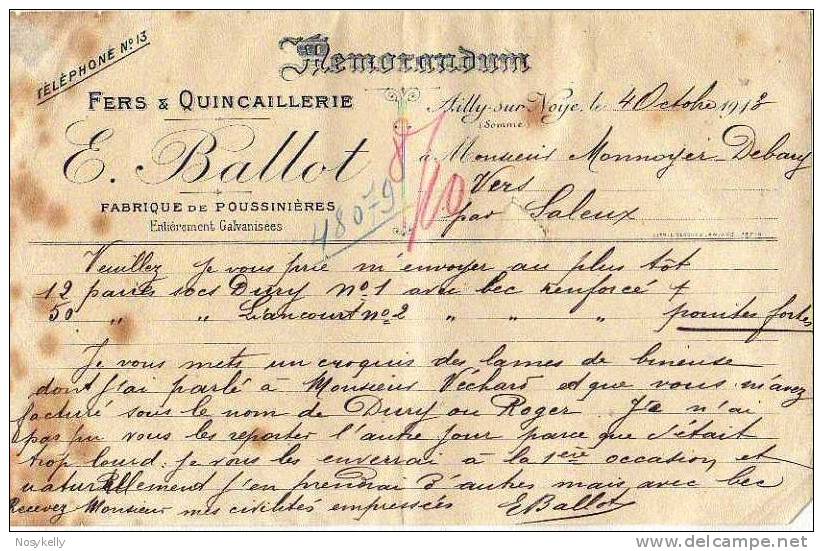 TÉLÉPHONE No 13
Memorandum
FERS & QUINCAILLERIE
E. Ballot
FABRIQUE DE POUSSINIÈRES
Entièrement Galvanisées
Ailly-sur-Noye, le 4 Octobre 1913
(Somme)
à Monsieur Monnoyer-Debary
Vers
par Saleux
48079
8/10
Veuillez je vous prie m'envoyer au plus tôt
12 paires socs Dury no 1 avec bec renforcé +
50 " " Liancourt no 2 " " " pointes fortes
Je vous mets un croquis des lames de bineuse
dont j'ai parlé à Monsieur Véchard et que vous m'avez
facturé sous le nom de Dury ou Roger. Je n'ai
pas pu vous les reporter l'autre jour parce que c'était
trop lourd. Je vous les enverrai à la 1ère occasion et
naturellement j'en prendrai d'autres mais avec bec
Recevez Monsieur mes civilités empressées EBallot
Nosykelly
www.delcampe.net